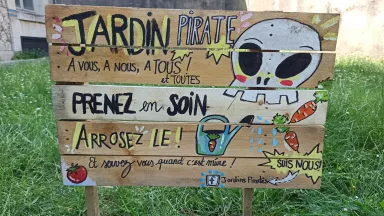 JARDIN PIRATE
À VOUS, À NOUS, À TOUS
et TOUTES
PRENEZ en SOIN
ARROSEZ LE !
Et servez-vous quand c'est mûre !
SUIS NOUS!
f Jardins Pirates